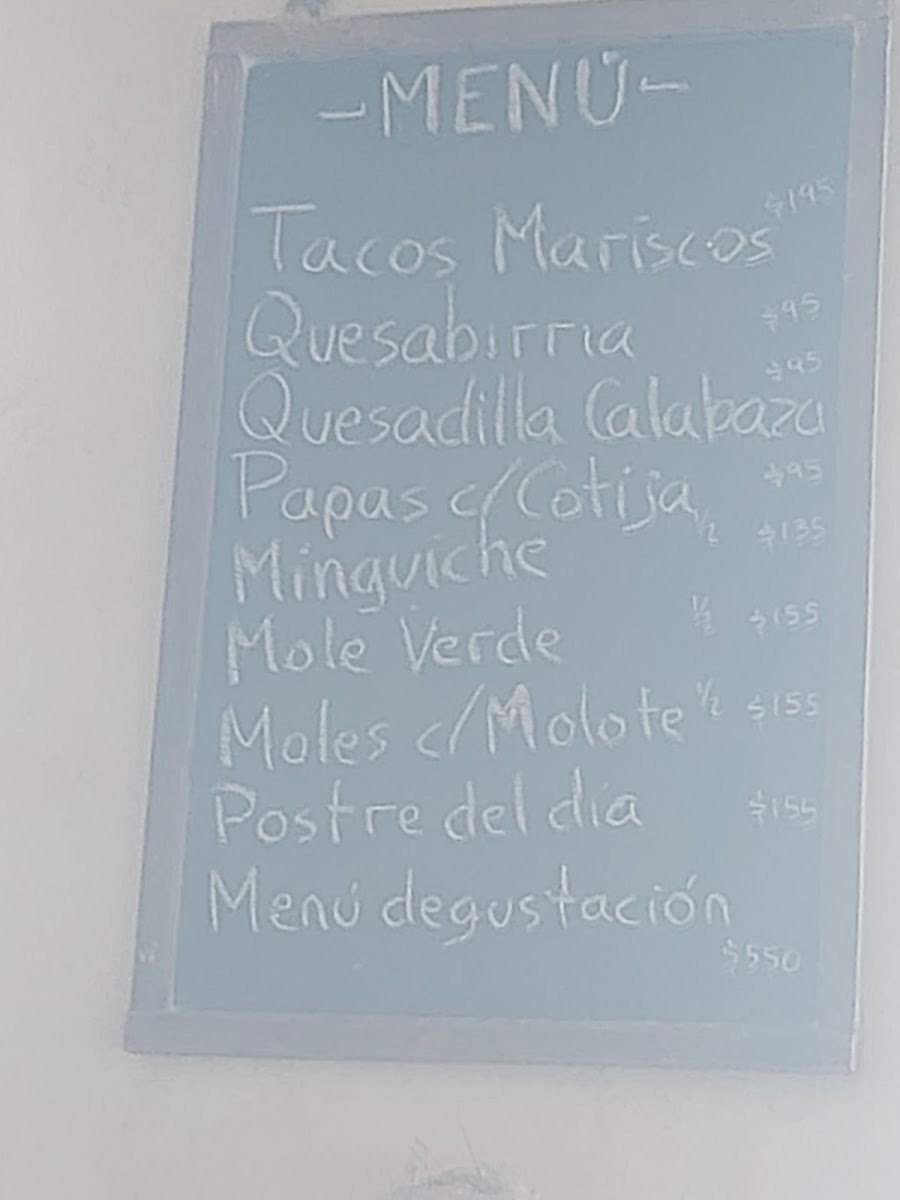 -MENÚ-
Tacos Mariscos $195
Quesabirria $95
Quesadilla Calabaza $95
Papas c/Cotija $95
Minguiche 1/2 $135
Mole Verde 1/2 $155
Moles c/Molote 1/2 $155
Postre del día $155
Menú degustación
$550